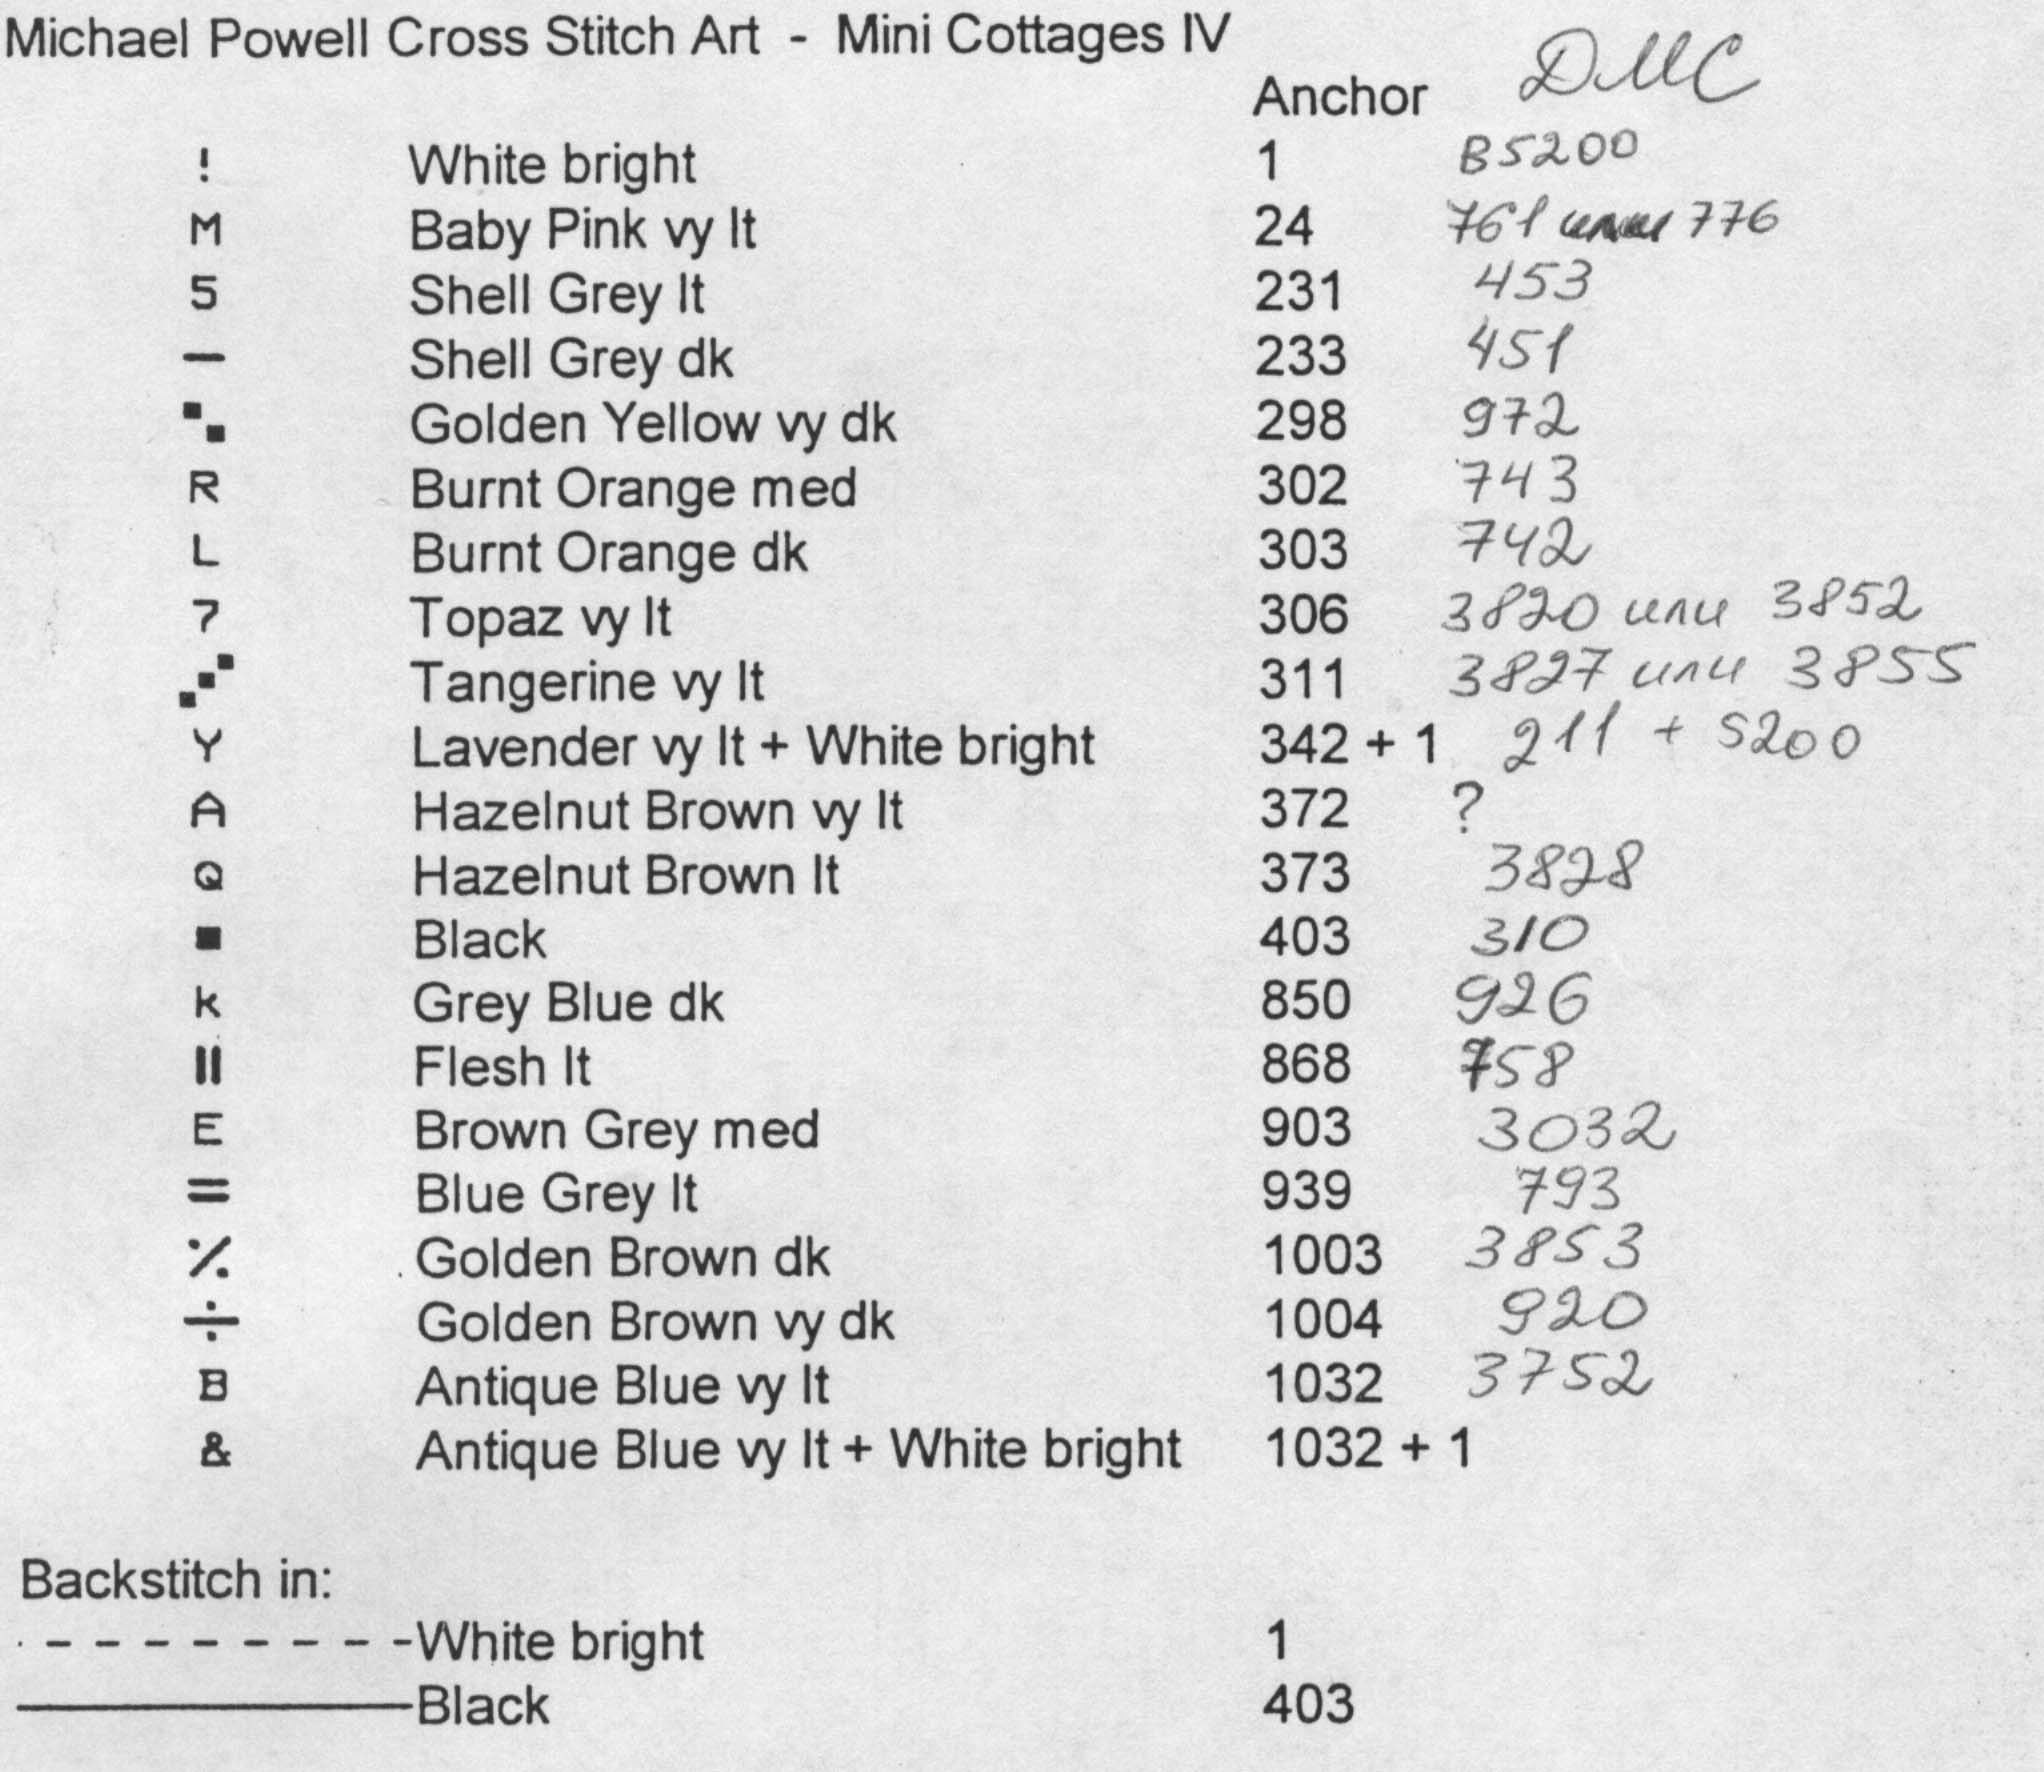 Michael Powell Cross Stitch Art - Mini Cottages IV
Anchor ДМС
! White bright 1 B5200
M Baby Pink vy lt 24 761 или 776
5 Shell Grey lt 231 453
— Shell Grey dk 233 451
▪▪ Golden Yellow vy dk 298 972
R Burnt Orange med 302 743
L Burnt Orange dk 303 742
7 Topaz vy lt 306 3820 или 3852
▪▪▪ Tangerine vy lt 311 3827 или 3855
Y Lavender vy lt + White bright 342 + 1 211 + 5200
A Hazelnut Brown vy lt 372 ?
Q Hazelnut Brown lt 373 3828
■ Black 403 310
k Grey Blue dk 850 926
|| Flesh lt 868 758
E Brown Grey med 903 3032
= Blue Grey lt 939 793
٪ Golden Brown dk 1003 3853
÷ Golden Brown vy dk 1004 920
B Antique Blue vy lt 1032 3752
& Antique Blue vy lt + White bright 1032 + 1
Backstitch in:
- - - - - - - - White bright 1
———— Black 403